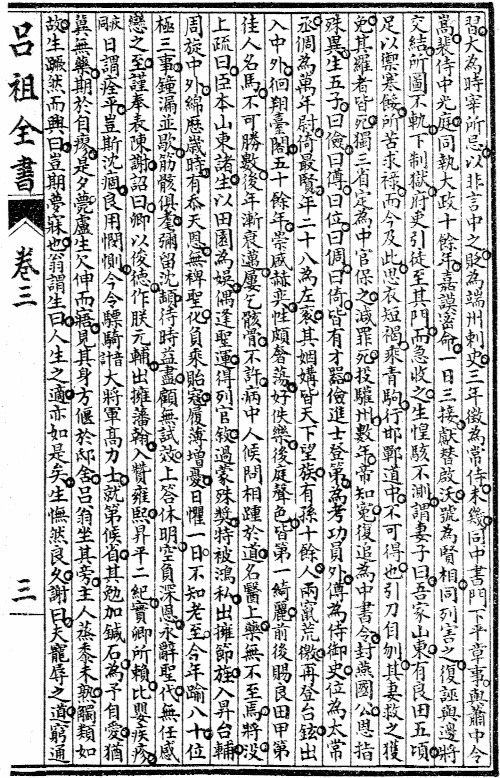 習大為時宰所忌以非言中之貶為端州刺史三年徵為常侍未幾同中書門下平章事與蕭中令
嵩裴侍中光庭同執大政十餘年嘉謨密命一日三接獻替啟沃號為賢相同列害之復誣與邊將
交結所圖不軌下制獄府吏引徒至其門而急收之生惶駭不測謂妻子曰吾家山東有良田五頃
足以禦寒餒所苦求祿而今及此思衣短褐乘青駒行邯鄲道中不可得也引刀自刎其妻救之獲
免其罹者皆死獨三省定為中官保之減罪死投驩州數年帝知冤復追為中書令封燕國公恩指
殊異生五子曰儉曰傅曰位曰倜曰倚皆有才器儉進士登第為考功員外傅為侍御史位為太常
丞倜為萬年尉倚最賢年二十八為左袞其姻媾皆天下望族有孫十餘人兩竄荒徼再登台鉉出
入中外徊翔臺閣五十餘年崇盛赫奕性頗奢蕩好佚樂後庭聲色皆第一綺麗前後賜良田甲第
佳人名馬不可勝數後年漸衰邁屢乞骸骨不許病中人候問相踵於道名醫上藥無不至焉將沒
上疏曰臣本山東諸生以田園為娛偶逢聖運得列官敘過蒙殊獎特被鴻私出擁節旄入昇台輔
周旋中外綿歷歲時有忝天恩無裨聖化負乘貽寇履薄增憂日懼一日不知老至今年踰八十位
極三事鐘漏並歇筋骸俱耄彌留沈痼待時益盡顧無試效上答休明空負深恩永辭聖代無任感
戀之至謹奉表陳謝詔曰卿以俊德作朕元輔出擁藩翰入贊雍熙昇平二紀實卿所賴比嬰疾疹
日謂痊平豈斯沈痼良用憫惻今令驃騎大將軍高力士就第候省其勉加鍼石為予自愛猶
冀無藥期於自瘳是夕薨盧生欠伸而寤見其身方偃於邸舍呂翁坐其旁主人蒸黍未熟觸類如
故生蹶然而興曰豈期夢寐也翁謂生曰人生之適亦如是矣生憮然良久謝曰夫寵辱之道窮通
呂祖全書
卷三
三